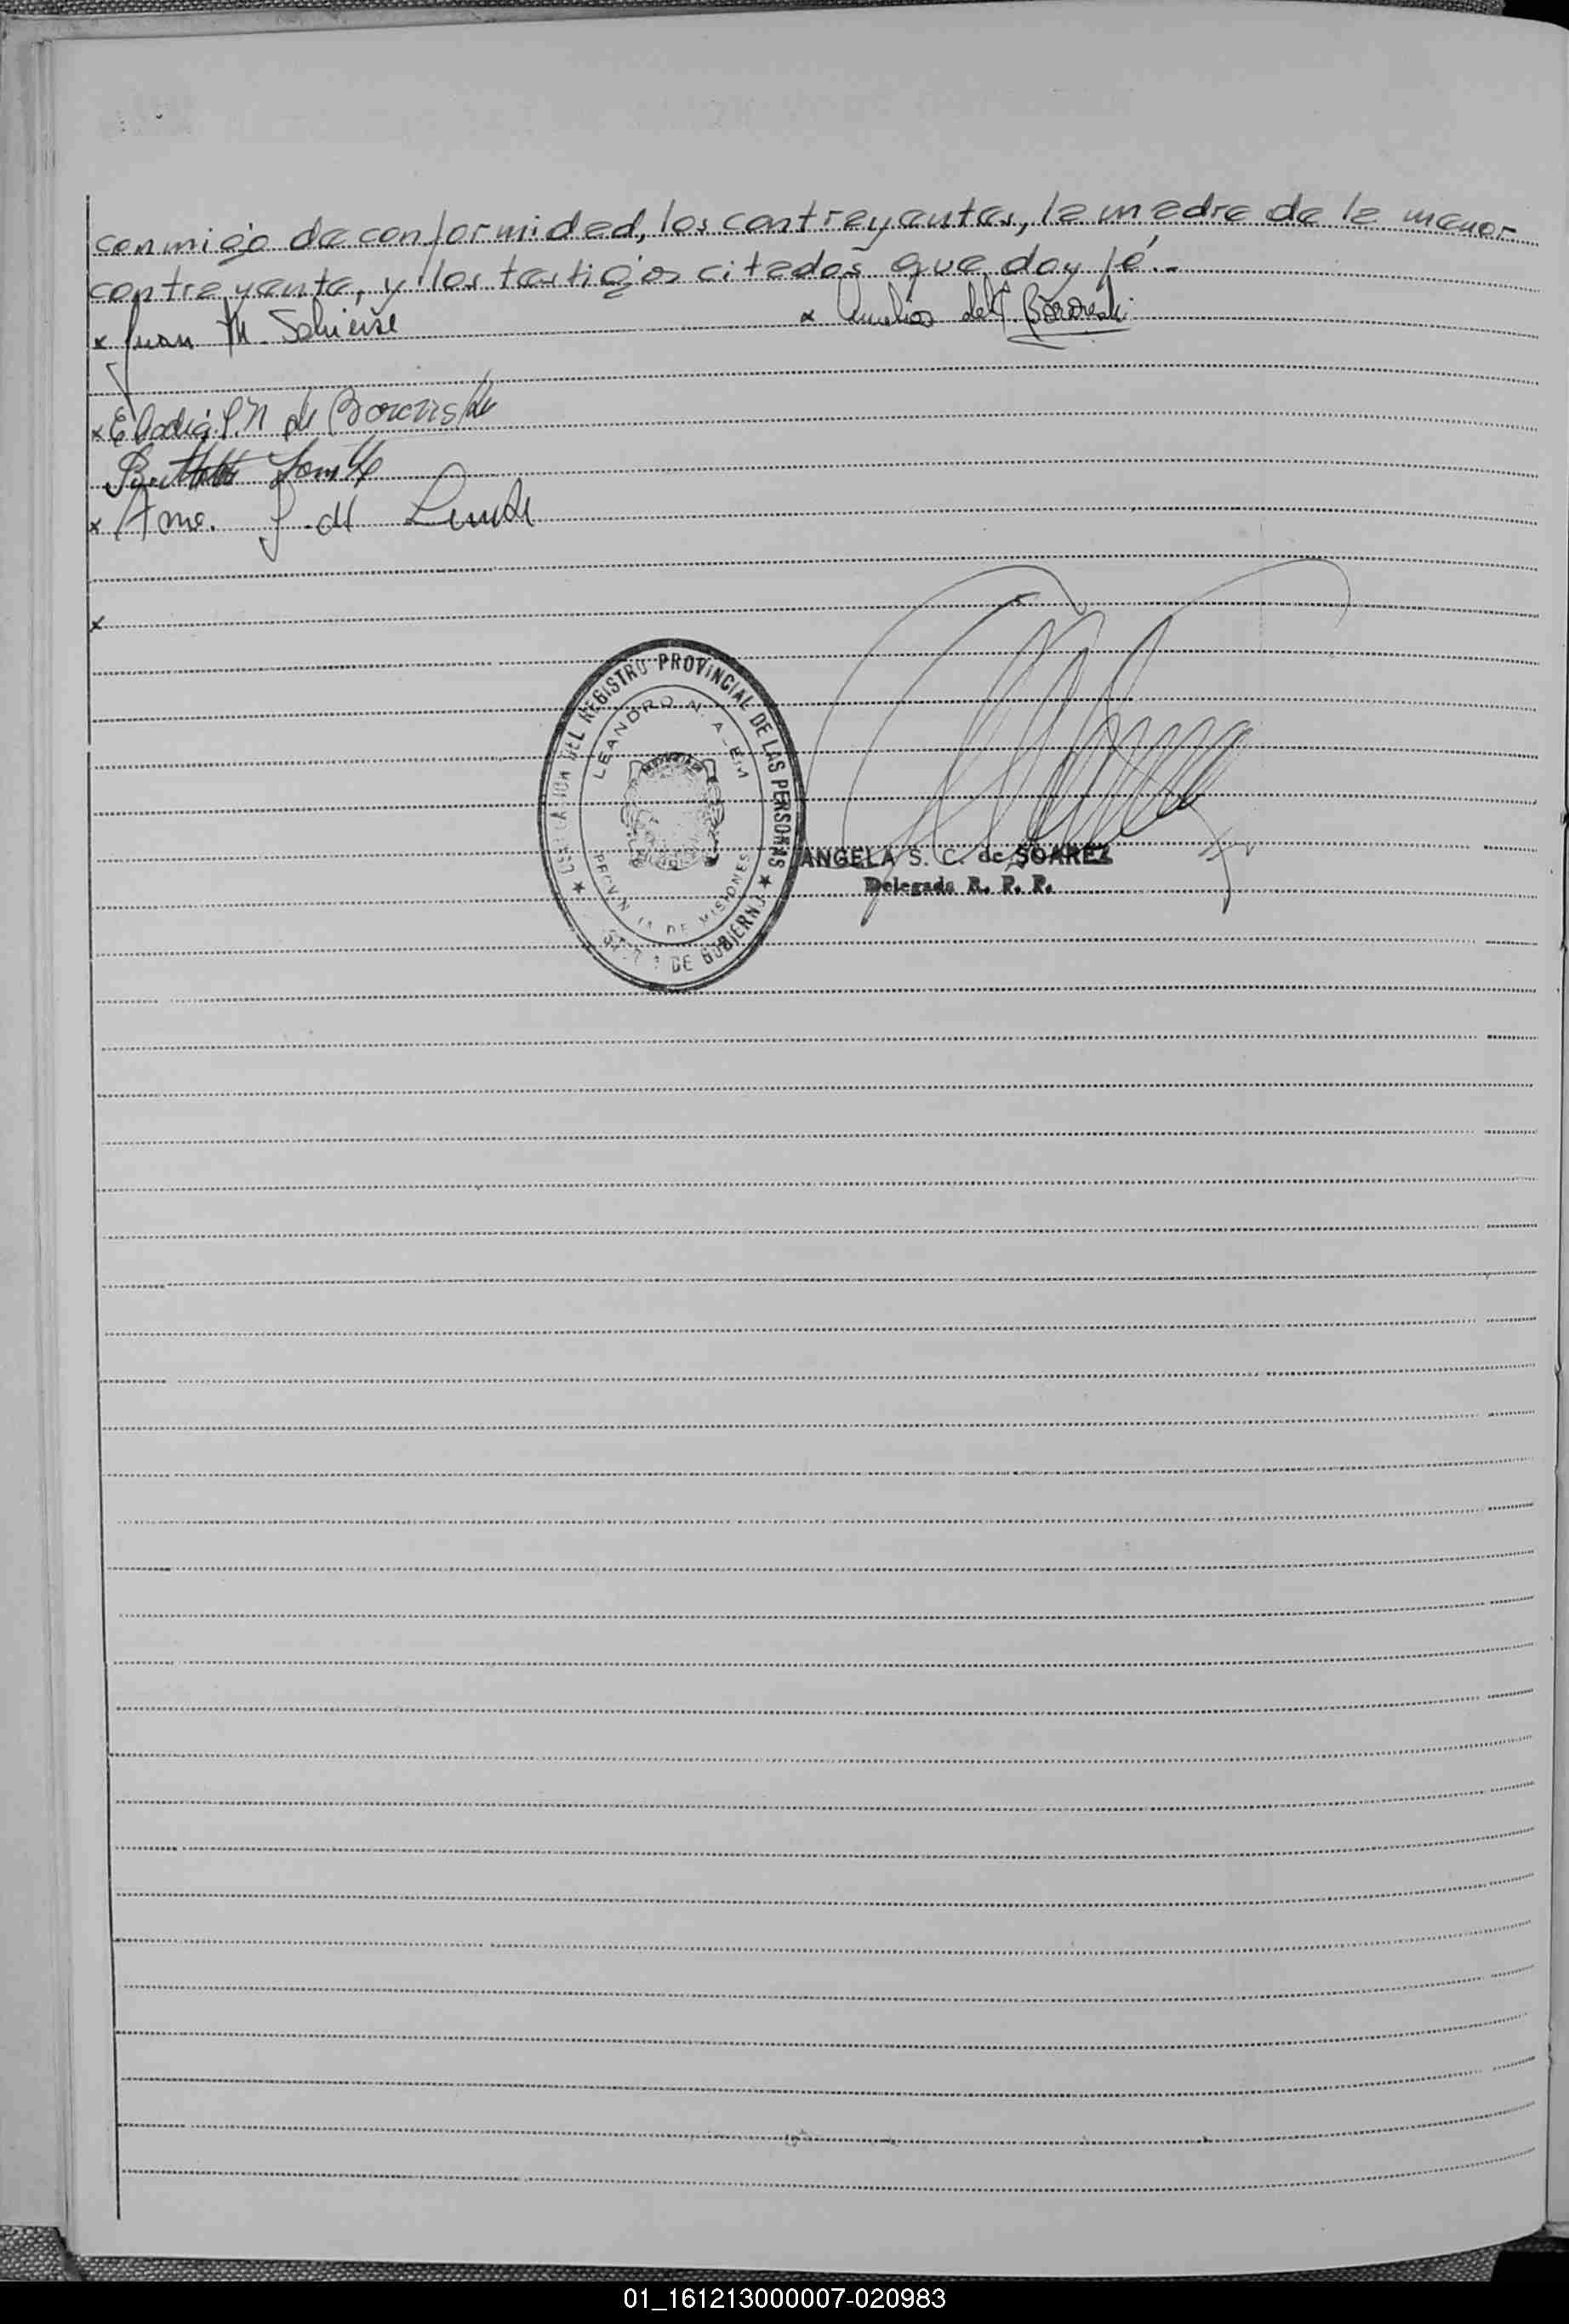 conmigo de conformidad, los contrayentes, la madre de la menor
contrayente, y los testigos citados que doy fé.-
x Juan M.
x del C.
x Eladia P. N de Boronski
x Ana. J. de
x
DEL REGISTRO PROVINCIAL DE LAS PERSONAS
LEANDRO N. ALEM
PROVINCIA DE MISIONES
DE GOBIERNO
ANGELA S. C. de SOAREZ
Delegada R. P. P.
01_161213000007-020983